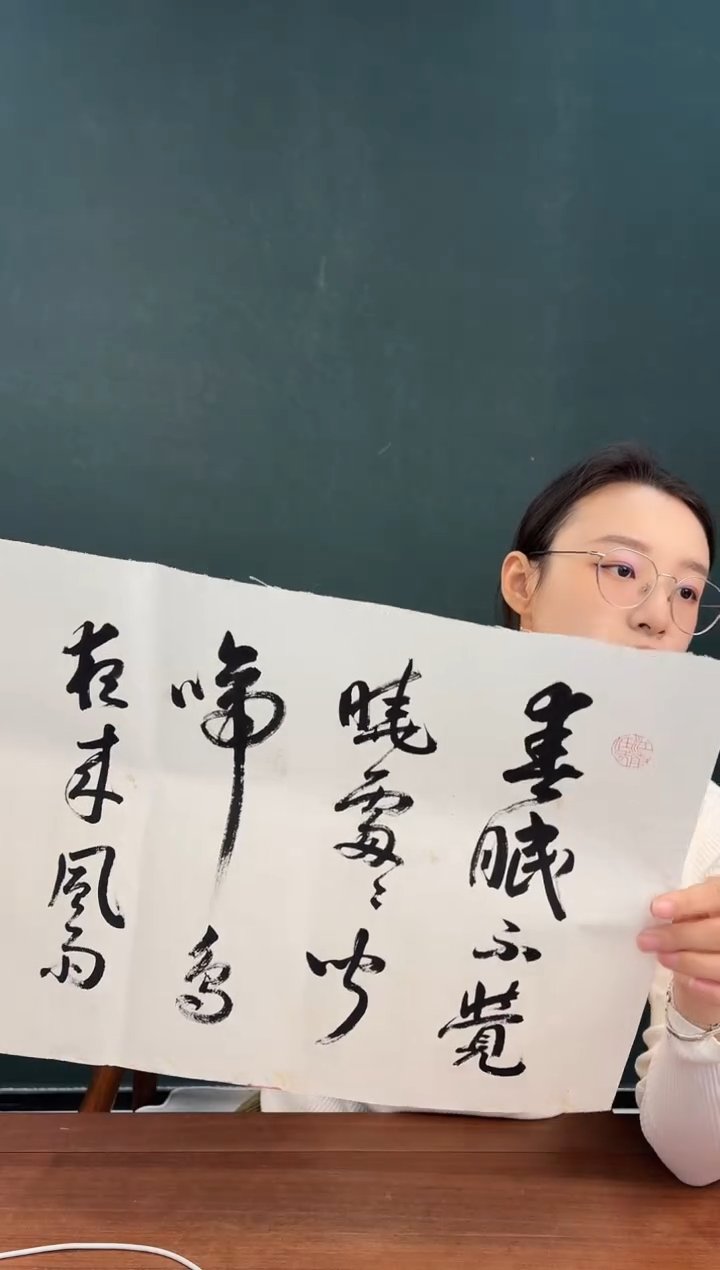 春眠不覺
曉處〻聞
啼鳥
夜来風雨